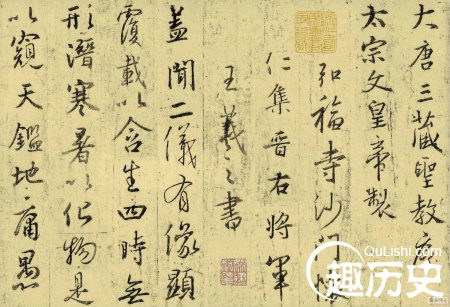 大唐三藏聖教序
太宗文皇帝製
弘福寺沙門懷
仁集晉右將軍
王羲之書
蓋聞二儀有像顯
覆載以含生四時無
形潛寒暑以化物是
以窺天鑑地庸愚
QuLishi.com
趣历史